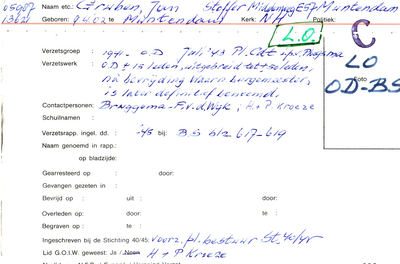 05087 Naam etc.: Gruben, Jan Stoffer Middenweg E57 Muntendam
Geboren: 9 4 02 te Muntendam Kerk: NH Politiek:
L.O. C
Verzetsgroep 1941 - O.D Juli '43 Pl. Cdt
Verzetswerk OD ± 15 leden, uitgebreid tot leden, LO
na bevrijding waarn. burgemeester, Foto OD-BS
is later definitief benoemd.
Contactpersonen: Bruggema - F.v.d.Wijk, H + P Kroeze
Schuilnaam :
Verzetsrapp. ingel. dd. : -45 bij: B.S 612-617-619
Naam genoemd in rapp.:
op bladzijde:
Gearresteerd op : door:
Gevangen gezeten in :
Bevrijd op : uit : door:
Overleden op : door: te :
Begraven op : te :
Ingeschreven bij de Stichting 40/45: voorz. pl. bestuur St. 40/45
Lid G.O.I.W. geweest: Ja / Neen H + P Kroeze